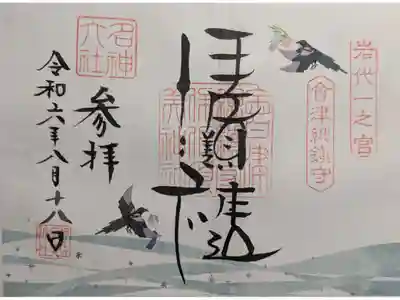 岩代一之宮
會津総鎮守
伊佐須美神社
名神大社
参拝
令和六年八月十八日